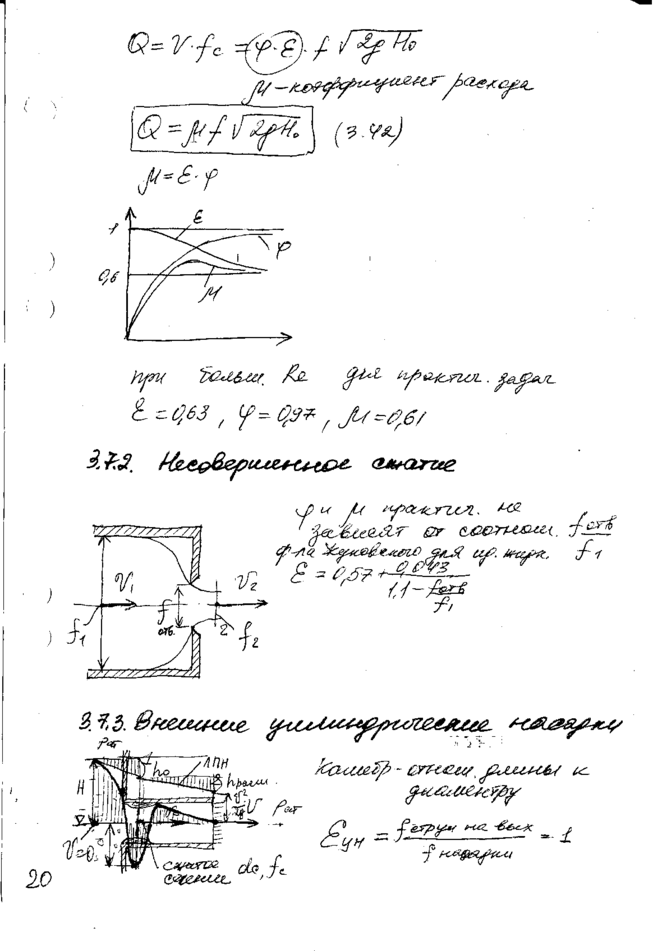 Q = V · fc = φ · ε · f √2gH₀
μ - коэффициент расхода
Q = μ f √2gH₀ (3.42)
μ = ε · φ
1
ε
φ
0,6
μ
при больш. Re для практич. задач
ε = 0,63 , φ = 0,97 , μ = 0,61
3.7.2. Несовершенное сжатие
φ и μ практич. не
зависят от соотнош. fотв/f1
ф-ла Жуковского для ид. жидк.
ε = 0,57 + 0,043/(1,1 - fотв/f1)
V1
V2
f1
f отв.
2
f2
3.7.3. Внешние цилиндрические насадки
Pат
h₀
ЛПН
H
V
Pат
V=0
сжатое
сечение dc, fc
Калибр - отнош. длины к
диаметру
εцн = f струи на вых / f насадки = 1
20